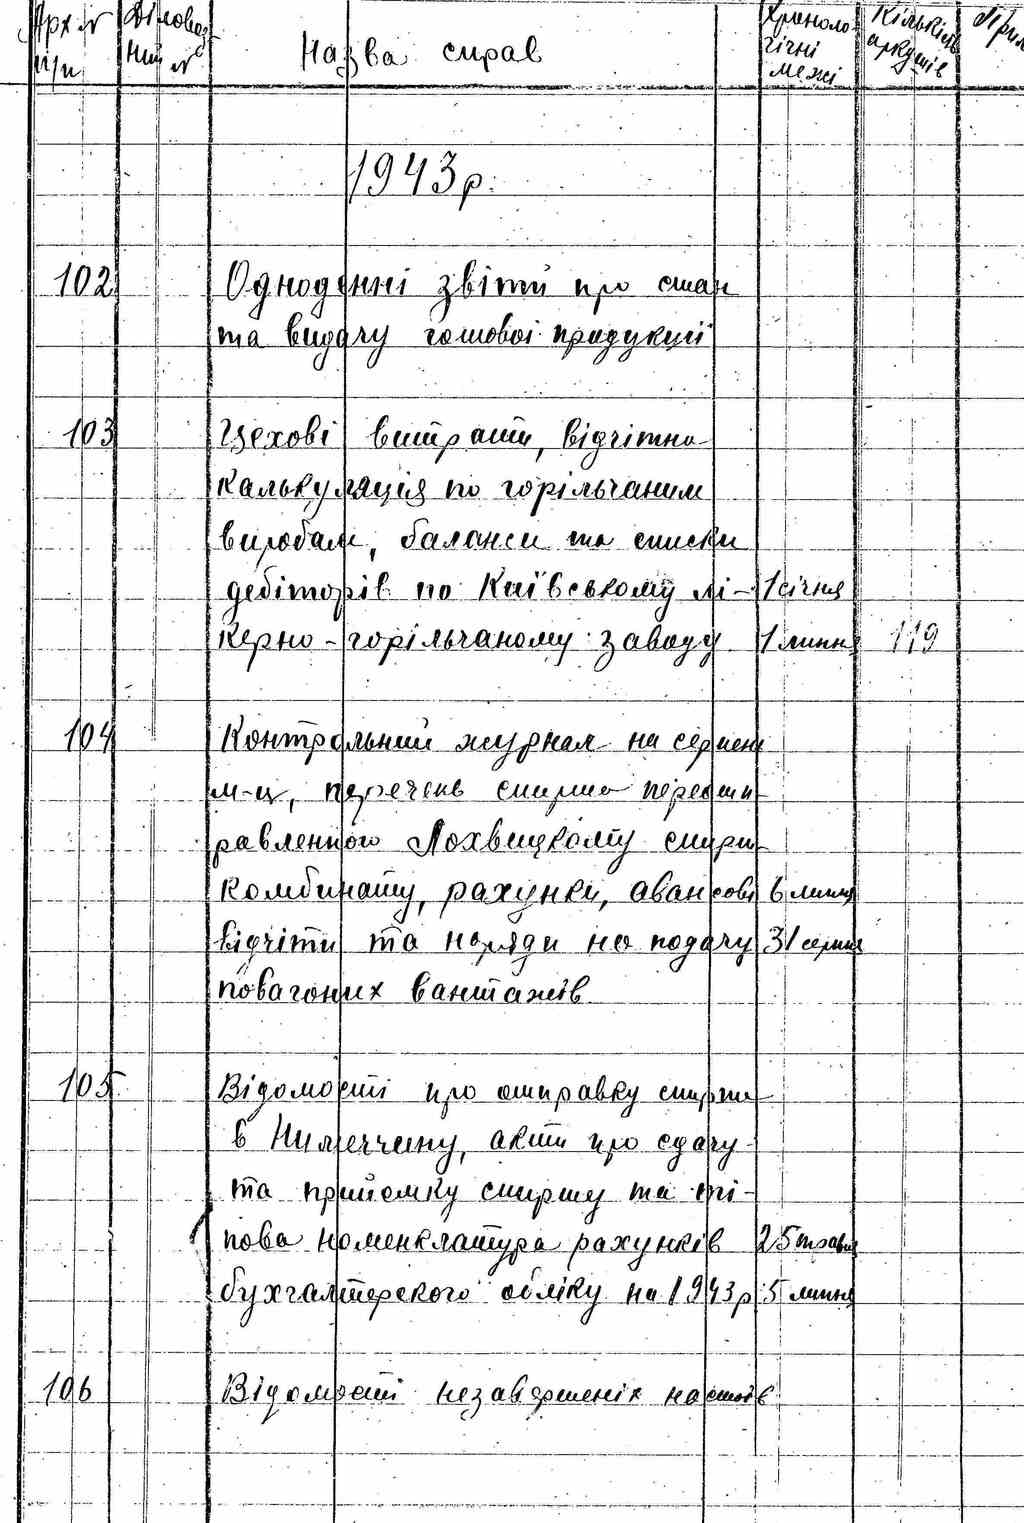 Арх № Діловод- Назва справ Хроноло- Кількість Прим
п/п ний № гічні аркушів
межі
1943р.
102 Одноденні звіти про стан
та видачу готової продукції
103 Цехові витрати, відчітна
калькуляція по горільчаним
виробам, баланси та списки
дебіторів по Київському лі- 1 січня
керно-горільчаному заводу 1 липня 119
104 Контрольний журнал на серпень
м-ц, перечень спирта переоти-
равленного Лохвицкому спирт-
комбинату, рахунки, авансові 6 липня
відчіти та наряди на подачу 31 серпня
повагоних вантажів
105 Відомості про отправку спирта
в Нимеччину, акти про сдачу
та прийомку спирту та ти-
пова номенклатура рахунків 25 травня
бухгалтерского обліку на 1943р 5 липня
106 Відомості незавершеніх настоїв